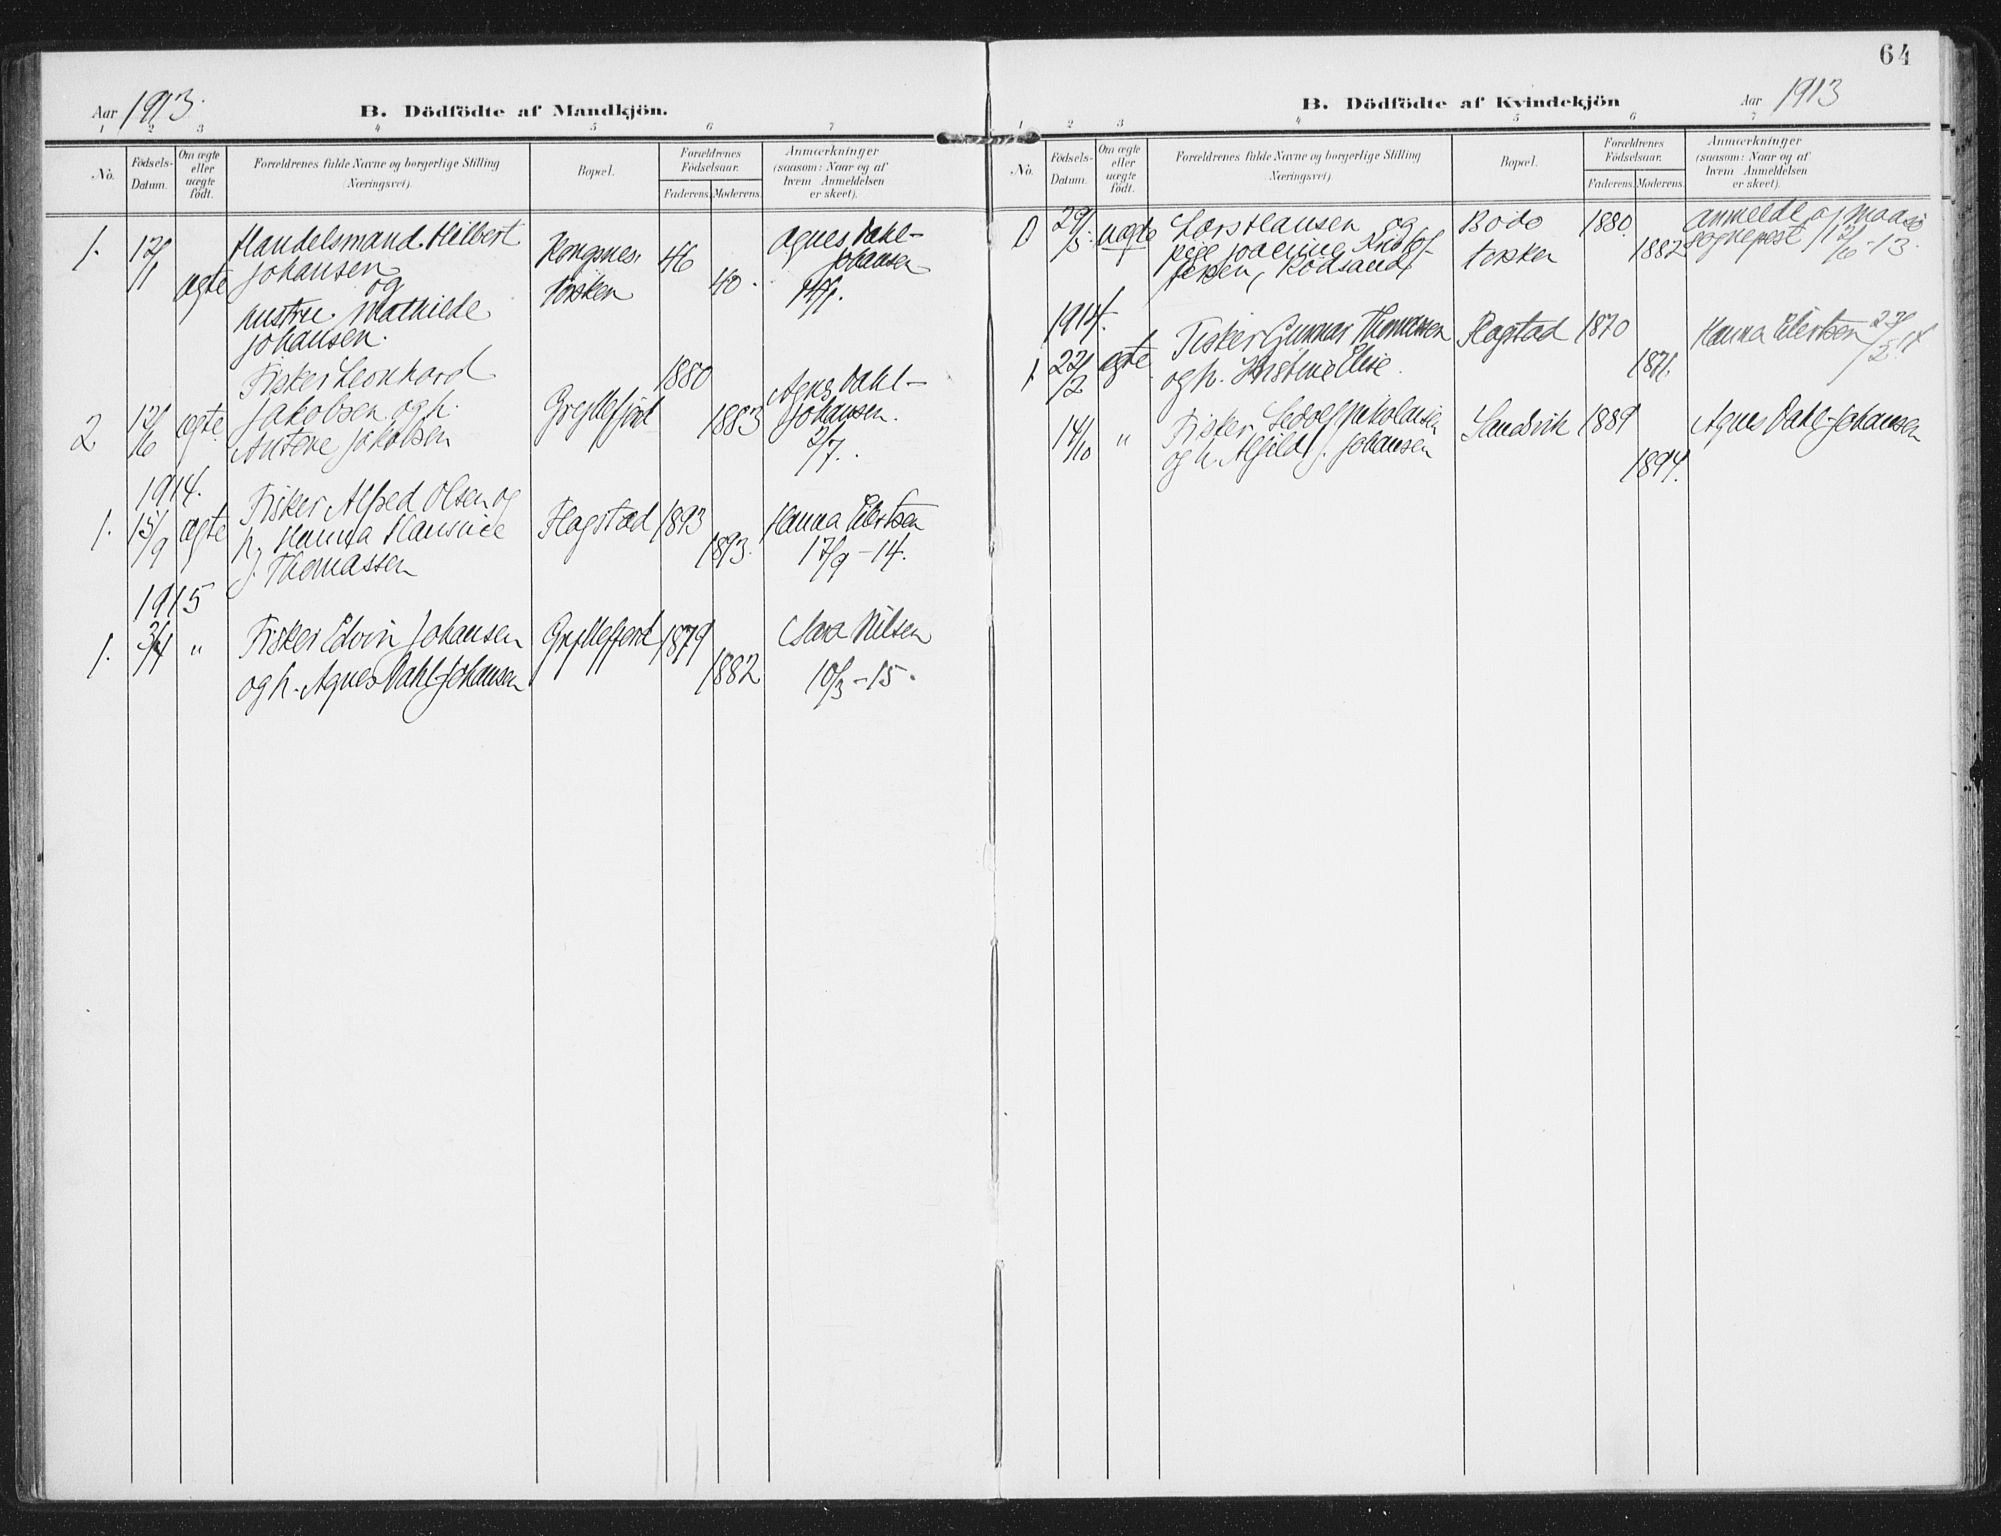 64
Aar 1913.
B. Dödfödte af Mandkjön.
1 2 3 4 5 6 7
No.
Födsels-Datum.
Om ægte eller uægte födt.
Forældrenes fulde Navne og borgerlige Stilling (Næringsvei).
Bopæl.
Forældrenes Födselsaar.
Faderens.
Moderens.
Anmærkninger (saasom: Naar og af hvem Anmeldelsen er skeet).
1. 12/1 ægte
Handelsmand Hilbert
Johansen
og
hustru Mathilde
Johansen.
Kongsnes
Torsken
46
40.
Agnes Dahl-
Johansen
2 12/6 ægte
Fisker Leonhard
Jakobsen og h.
Antene Jakobsen
Gryllefjord
1880
1883
Agnes Dahl-
Johansen.
2/7.
1914.
1. 15/9 ægte
Fisker Alfred Olsen og
h. Hanna Hansine
J. Thomassen
Flagstad
1893
1893.
Hanna Eilertsen
17/9-14.
1915
1. "
Fisker Edvin Johansen
og h. Agnes Dahl-Johansen
Gryllefjord
1879
1882
Sara Nilsen
10/3-15.
B. Dödfödte af Kvindekjön
Aar 1913
1 2 3 4 5 6 7
No.
Födsels-Datum.
Om ægte eller uægte födt.
Forældrenes fulde Navne og borgerlige Stilling (Næringsvei).
Bopæl.
Forældrenes Födselsaar.
Faderens.
Moderens.
Anmærkninger (saasom: Naar og af hvem Anmeldelsen er skeet).
0 29/5 uægte
Lars Hansen og
pige Joakine Kristof-
fersen, Rödsand
Bodo
Torsken
1880.
1882
anmeldt af Maasö
sognepest 12/6-13.
1914.
1 22/2 ægte
Fisker Gunnar Thomassen
og h. Kristine Elise.
Flagstad
1870
1871.
Hanna Eilertsen
14/10 "
Fisker Sedolf Nikolaisen
og h. Alfild J. Johansen
Sandvik
1889
1894.
Agnes Dahl-Johansen